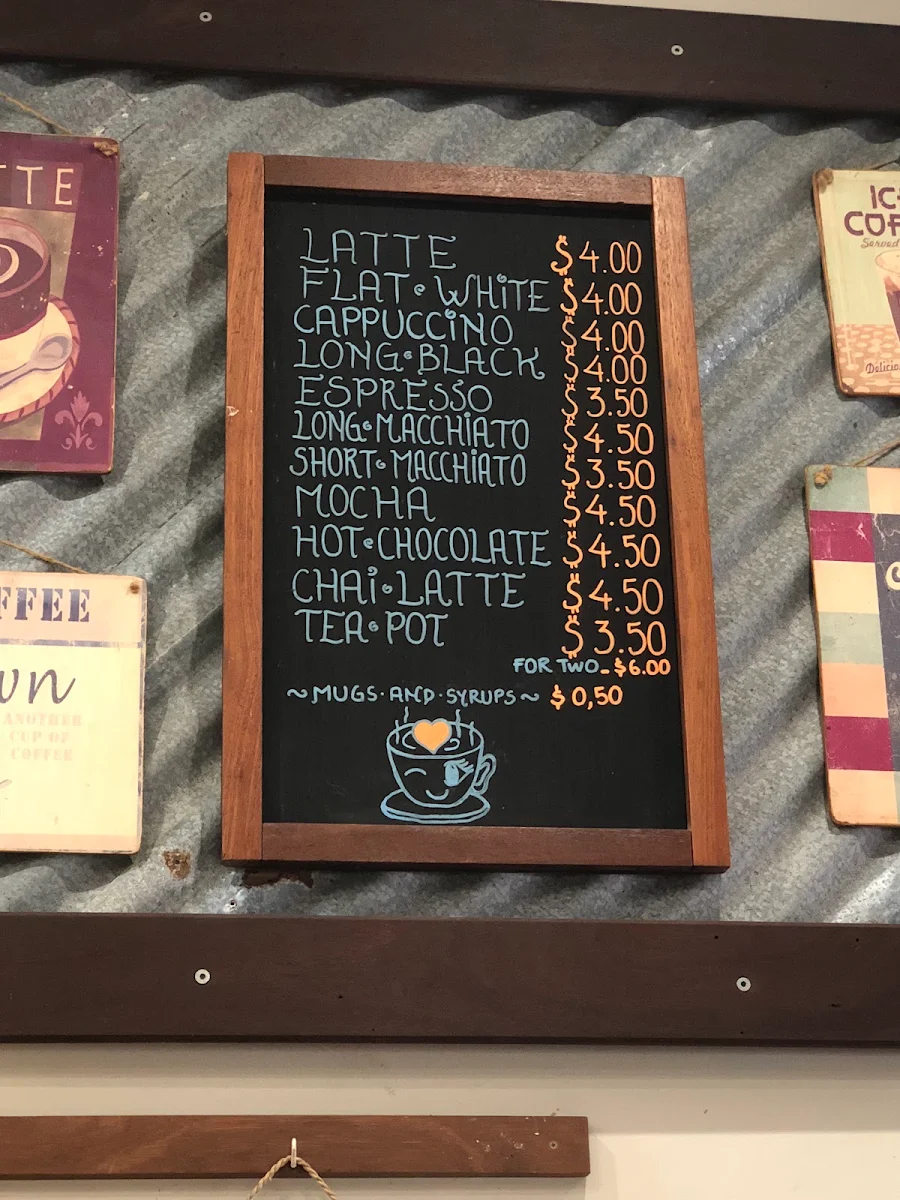 LATTE $4.00
FLAT•WHiTE $4.00
CAPPUCCiNO $4.00
LONG•BLACK $4.00
ESPRESSO $3.50
LONG•MACCHiATO $4.50
SHORT•MACCHiATO $3.50
MOCHA $4.50
HOT•CHOCOLATE $4.50
CHAi•LATTE $4.50
TEA•POT $3.50
FOR TWO - $6.00
~MUGS·AND·SYRUPS~ $0,50
TTE
FFEE
wn
ANOTHER
CUP OF
COFFEE
IC
COF
Served
Delicio